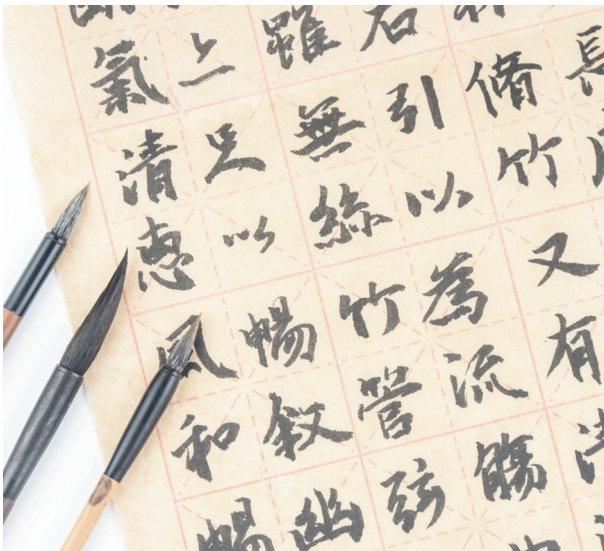 長
脩竹又有清
右引以為流觴
雖無絲竹管弦
足以暢叙幽
氣清惠風和暢